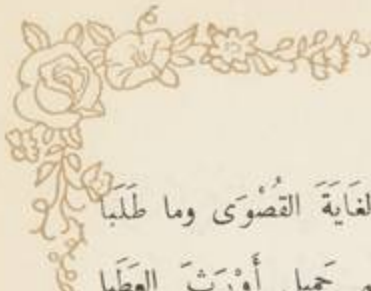 لغَايَةَ القُصْوَى وما طَلَبَا
جَمِيلٍ أَوْرَثَ العَطَبَا